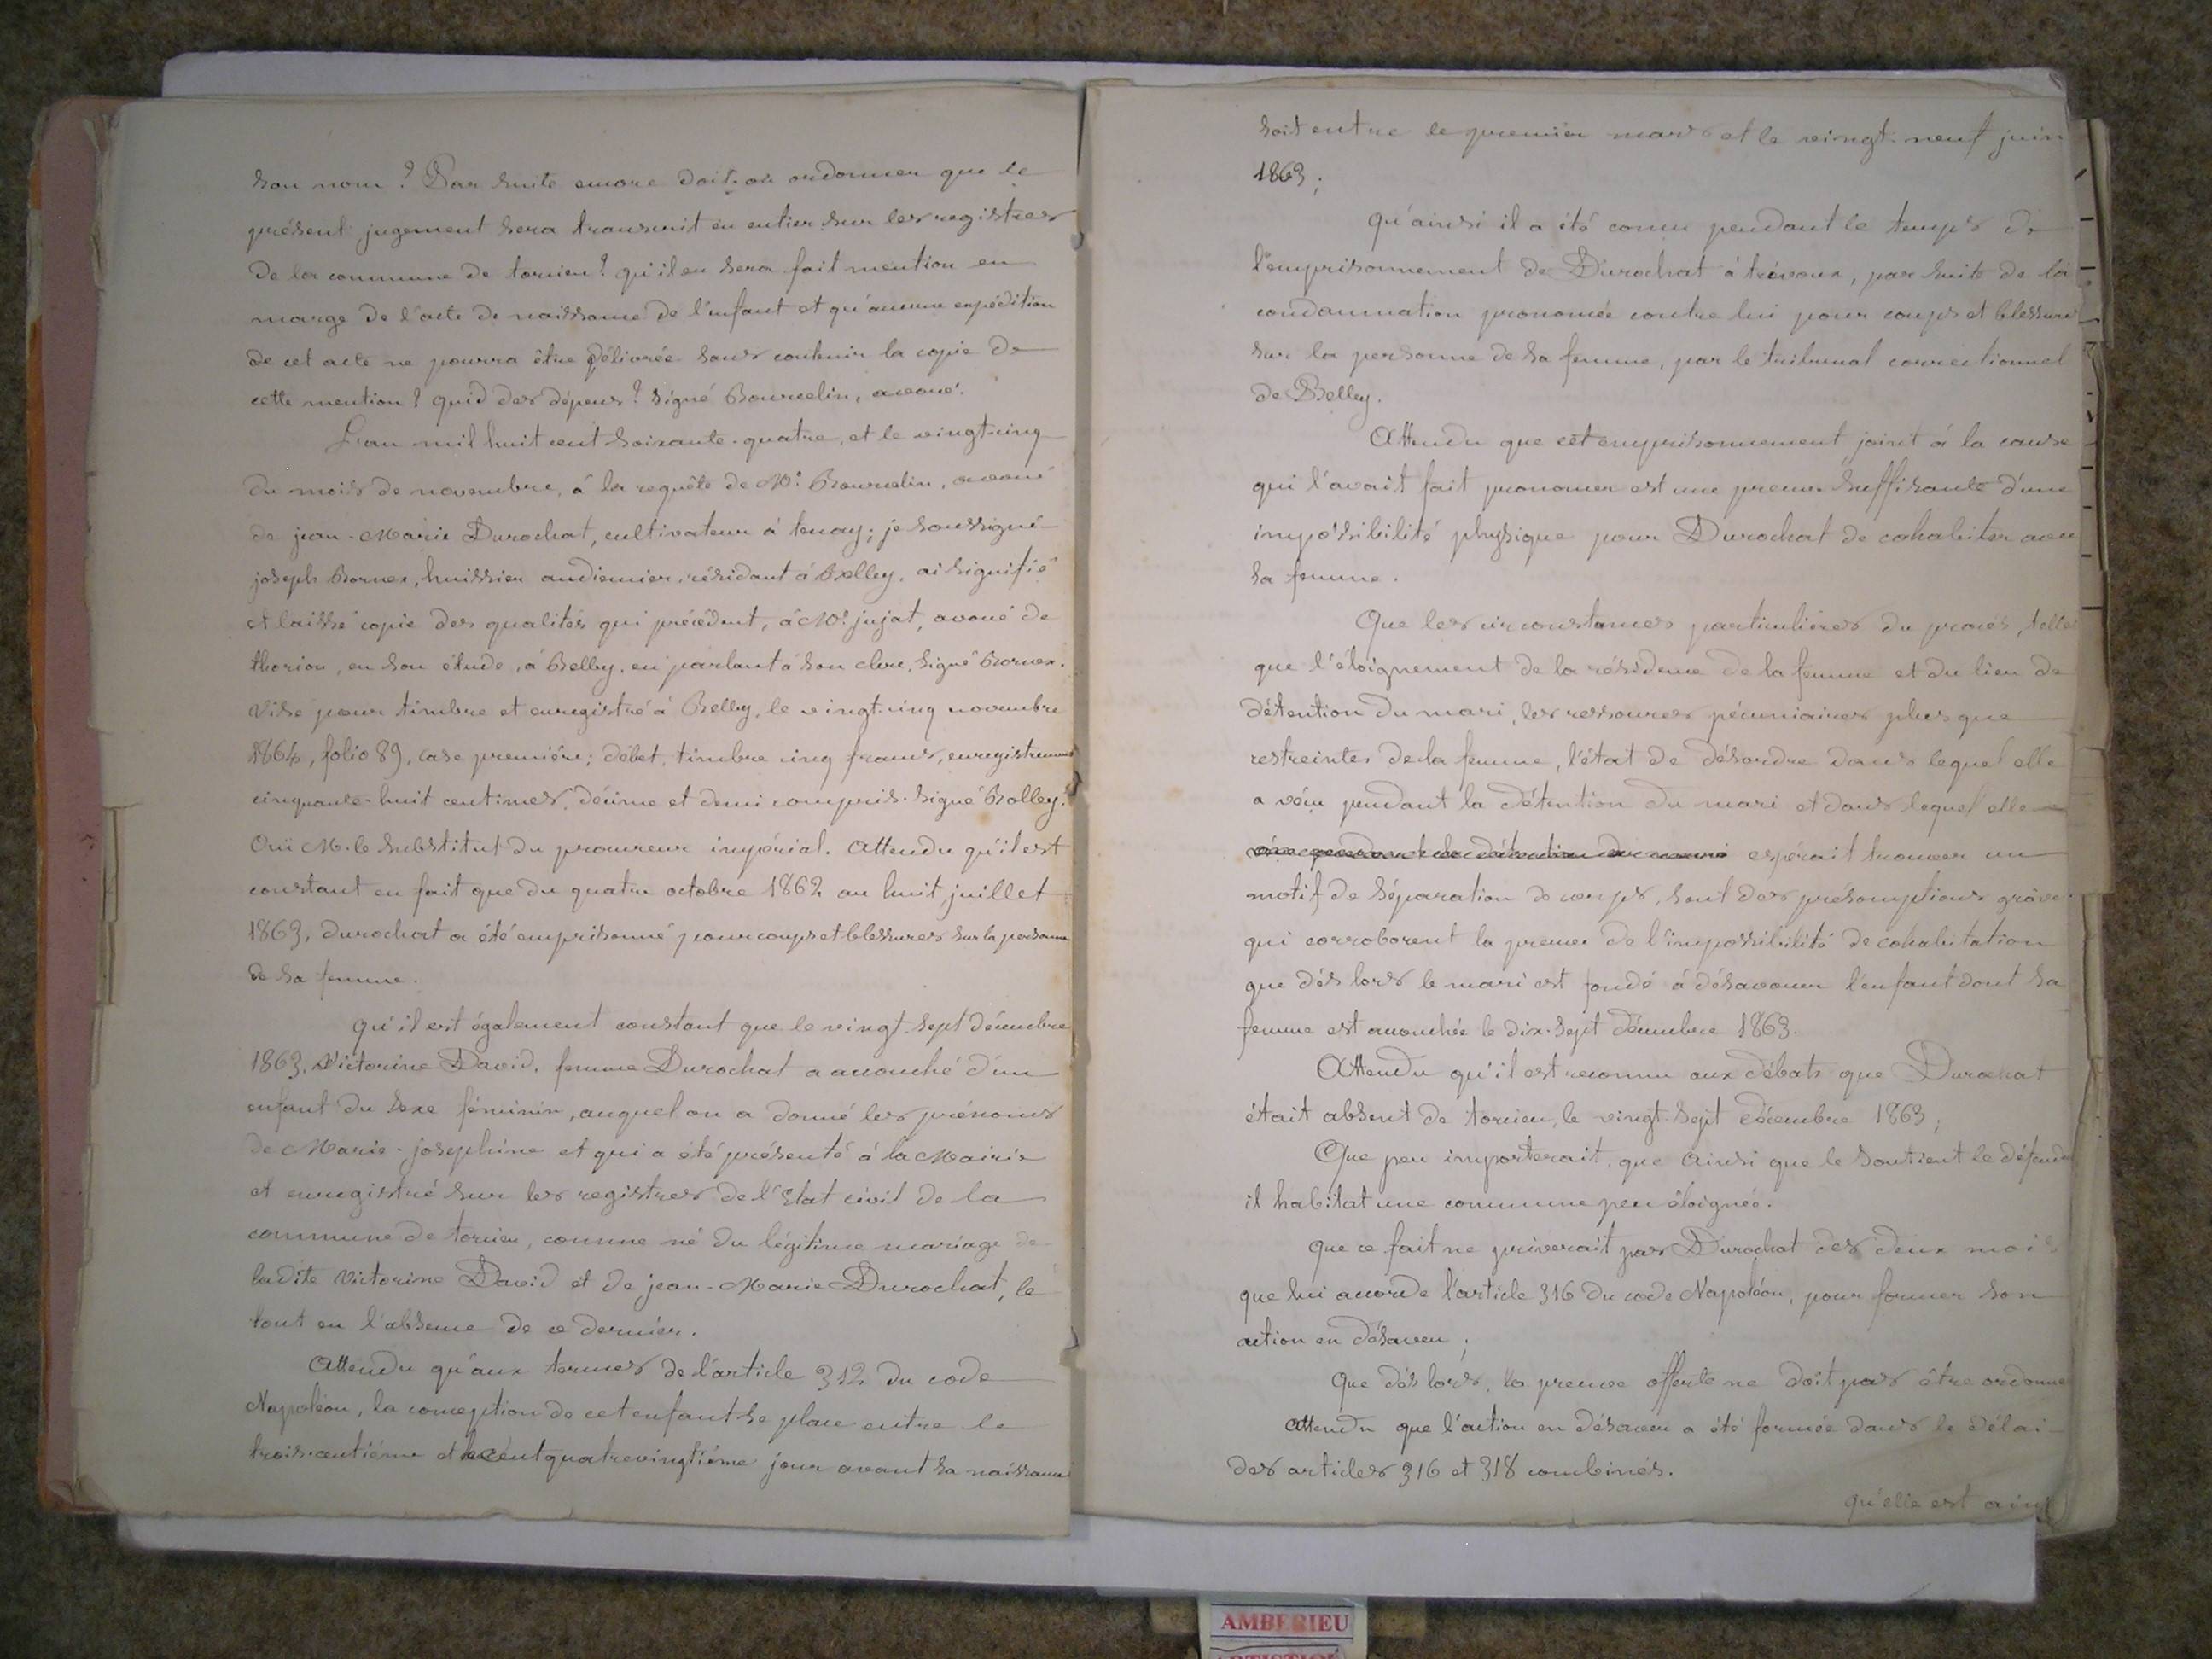 son nom ? Par suite encore doit-on ordonner que le
présent jugement sera transcrit en entier sur les registres
de la commune de torcieu ? qu'il en sera fait mention en
marge de l'acte de naissance de l'enfant et qu'aucune expédition
de cet acte ne pourra être délivrée sans contenir la copie de
cette mention ? quid des dépens ? Signé Bourcelin, avoué.
L'an mil huit cent soixante-quatre, et le vingt-cinq
du mois de novembre, à la requête de Me Bourcelin, avoué
de jean-Marie Durochat, cultivateur à tenay; je soussigné
joseph Bornex, huissier audiencier résidant à Belley, ai signifié
et laissé copie des qualités qui précèdent, à Me jujat, avoué de
thorion, en son étude, à Belley, en parlant à son clerc, signé Bornex.
Visé pour timbre et enregistré à Belley, le vingt-cinq novembre
1864, folio 89, case première; débet, timbre cinq francs, enregistrement
cinquante-huit centimes, décime et demi compris. Signé Bolley.
Ouï M. le substitut du procureur impérial. Attendu qu'il est
constant en fait que du quatre octobre 1862 au huit juillet
1863, durochat a été emprisonné pour coups et blessures sur la personne
de sa femme.
qu'il est également constant que le vingt-sept décembre
1863, Victorine David, femme Durochat a accouché d'un
enfant du sexe féminin, auquel on a donné les prénoms
de Marie-josephine et qui a été présenté à la Mairie
et enregistré sur les registres de l'Etat civil de la
commune de torcieu, comme né du légitime mariage de
ladite Victorine David et de jean-Marie Durochat, le
tout en l'absence de ce dernier.
Attendu qu'aux termes de l'article 312 du code
Napoléon, la conception de cet enfant se place entre le
trois-centième et le cent quatrevingtième jour avant sa naissance
soit entre le premier mars et le vingt-neuf juin
1863;
qu'ainsi il a été conçu pendant le temps de
l'emprisonnement de Durochat à trévoux, par suite de la
condamnation prononcée contre lui pour coups et blessures
sur la personne de sa femme, par le tribunal correctionnel
de Belley.
Attendu que cet emprisonnement joint à la cause
qui l'avait fait prononcer est une preuve suffisante d'une
impossibilité physique pour Durochat de cohabiter avec
sa femme.
Que les circonstances particulières du procès, telle
que l'éloignement de la résidence de la femme et du lieu de
détention du mari, les ressources pécuniaires plus que
restreintes de la femme, l'état de désordre dans lequel elle
a vécu pendant la détention du mari et dans lequel elle
vécu pendant la détention du mari espérait trouver un
motif de séparation de corps, sont des présomptions grave
qui corroborent la preuve de l'impossibilité de cohabitation
que dès lors le mari est fondé à désavouer l'enfant dont sa
femme est accouchée le dix-sept décembre 1863.
Attendu qu'il est reconnu aux débats que Durochat
était absent de torcieu, le vingt-sept décembre 1863;
Que peu importerait, que Ainsi que le soutient le défende
il habitat une commune peu éloignée.
que ce fait ne priverait pas Durochat des deux mois
que lui accorde l'article 316 du code Napoléon, pour former son
action en désaveu;
Que dès lors, la preuve offerte ne doit pas être ordonne
Attendu que l'action en désaveu a été formée dans le délai
des articles 316 et 318 combinés.
qu'elle est
AMBERIEU